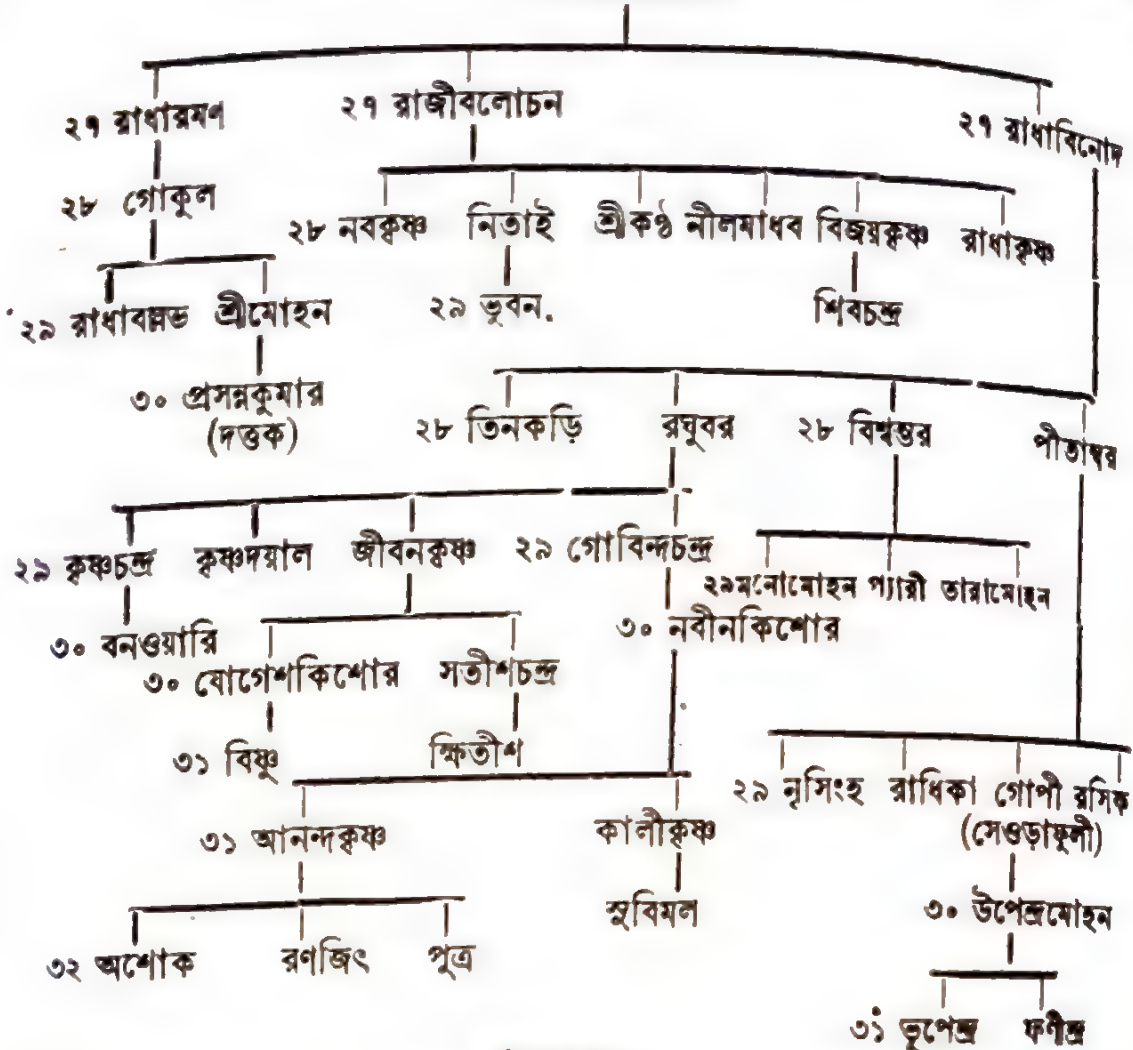 ২৭ রাধারমণ ২৭ রাজীবলোচন ২৭ রাধাবিনোদ
২৮ গোকুল
২৮ নবকৃষ্ণ নিতাই শ্রীকণ্ঠ নীলমাধব বিজয়কৃষ্ণ রাধাকৃষ্ণ
২৯ রাধাবল্লভ শ্রীমোহন ২৯ ভুবন. শিবচন্দ্র
৩০ প্রসন্নকুমার
(দত্তক)
২৮ তিনকড়ি রঘুবর ২৮ বিশ্বম্ভর পীতাম্বর
২৯ কৃষ্ণচন্দ্র কৃষ্ণদয়াল জীবনকৃষ্ণ ২৯ গোবিন্দচন্দ্র
২৯মনোমোহন প্যারী তারামোহন
৩০ বনওয়ারি ৩০ নবীনকিশোর
৩০ যোগেশকিশোর সতীশচন্দ্র
৩১ বিষ্ণু ক্ষিতীশ
২৯ নৃসিংহ রাধিকা গোপী রসিক
(সেওড়াফুলী)
৩১ আনন্দকৃষ্ণ কালীকৃষ্ণ
সুবিমল ৩০ উপেন্দ্রমোহন
৩২ অশোক রণজিৎ পুত্র
৩১ ভূপেন্দ্র ফণীন্দ্র